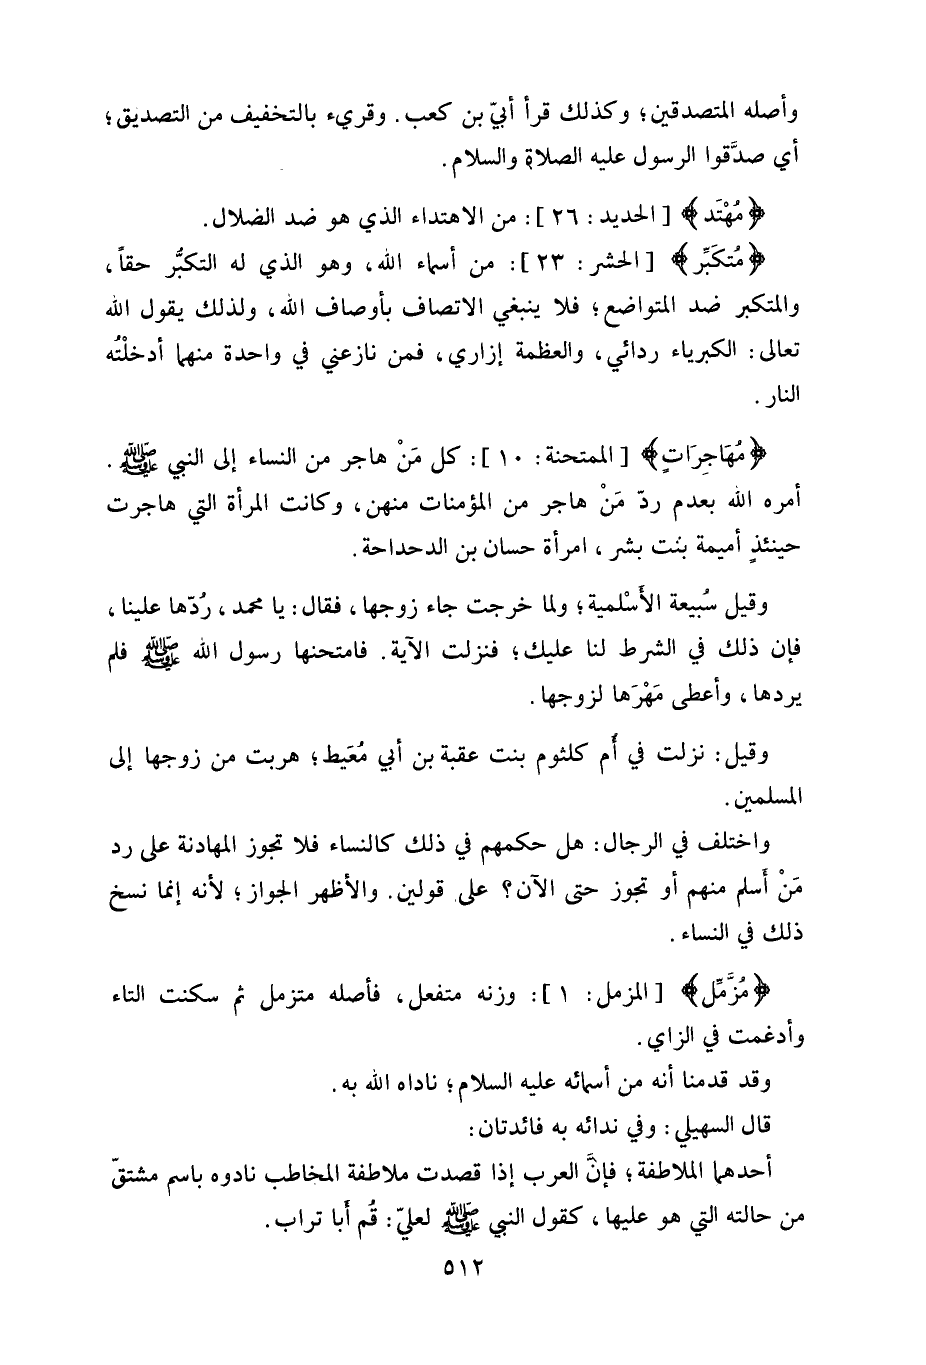 وأصله المتصدقين؛ وكذلك قرأ أبيّ بن كعب. وقريء بالتخفيف من التصديق؛
أي صدَّقوا الرسول عليه الصلاة والسلام.
﴿مُهْتَد﴾ [الحديد: ٢٦]: من الاهتداء الذي هو ضد الضلال.
﴿مُتكَبِّر﴾ [الحشر: ٢٣]: من أسماء الله، وهو الذي له التكبُّر حقاً،
والمتكبر ضد المتواضع؛ فلا ينبغي الاتصاف بأوصاف الله، ولذلك يقول الله
تعالى: الكبرياء ردائي، والعظمة إزاري، فمن نازعني في واحدة منهما أدخلْتُه
النار.
﴿مُهَاجِرَاتٍ﴾ [الممتحنة: ١٠]: كل مَنْ هاجر من النساء إلى النبي ﷺ.
أمره الله بعدم ردّ مَنْ هاجر من المؤمنات منهن، وكانت المرأة التي هاجرت
حينئذٍ أميمة بنت بشر، امرأة حسان بن الدحداحة.
وقيل سُبيعة الأَسْلمية؛ ولما خرجت جاء زوجها، فقال: يا محمد، رُدّها علينا،
فإن ذلك في الشرط لنا عليك؛ فنزلت الآية. فامتحنها رسول الله ﷺ فلم
يردها، وأعطى مَهْرَها لزوجها.
وقيل: نزلت في أُم كلثوم بنت عقبة بن أبي مُعَيط؛ هربت من زوجها إلى
المسلمين.
واختلف في الرجال: هل حكمهم في ذلك كالنساء فلا تجوز المهادنة على رد
مَنْ أَسلم منهم أو تجوز حتى الآن؟ على قولين. والأظهر الجواز؛ لأنه إنما نسخ
ذلك في النساء.
﴿مُزَّمِّل﴾ [المزمل: ١]: وزنه متفعل، فأصله متزمل ثم سكنت التاء
وأدغمت في الزاي.
وقد قدمنا أنه من أسمائه عليه السلام؛ ناداه الله به.
قال السهيلي: وفي ندائه به فائدتان:
أحدهما الملاطفة؛ فإنَّ العرب إذا قصدت ملاطفة المخاطب نادوه باسم مشتقّ
من حالته التي هو عليها، كقول النبي ﷺ لعليّ: قُم أَبا تراب.
٥١٢